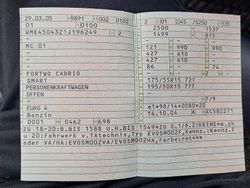 29.03.05 9891 002 0102
01 0100
WME4504321J196249 2
MC 01
FORTWO CABRIO
SMART
PERSONENKRAFTWAGEN
OFFEN
EURO 4
Benzin
0001 0462 698
2 01 45 /5250 135
2500 1537
1699 815
121 990 990
427 610
427 610
86 74
5 2
175/55R15 77T
195/50R15 82T
e1*98/14*0080*20
14.10.04 K
ZU 18-20:B.BIS 1588 U.H.BIS 1549*ZU 0.1/0.2:KEINE*m.Ch
v 20:Fahrwerk v.TAtechnix,Typ EVOSMO02F,Kennz.:Kennz.f
eder VA/HA:EVOSMO02VA/EVOSMO02HA,Farbe:rot***